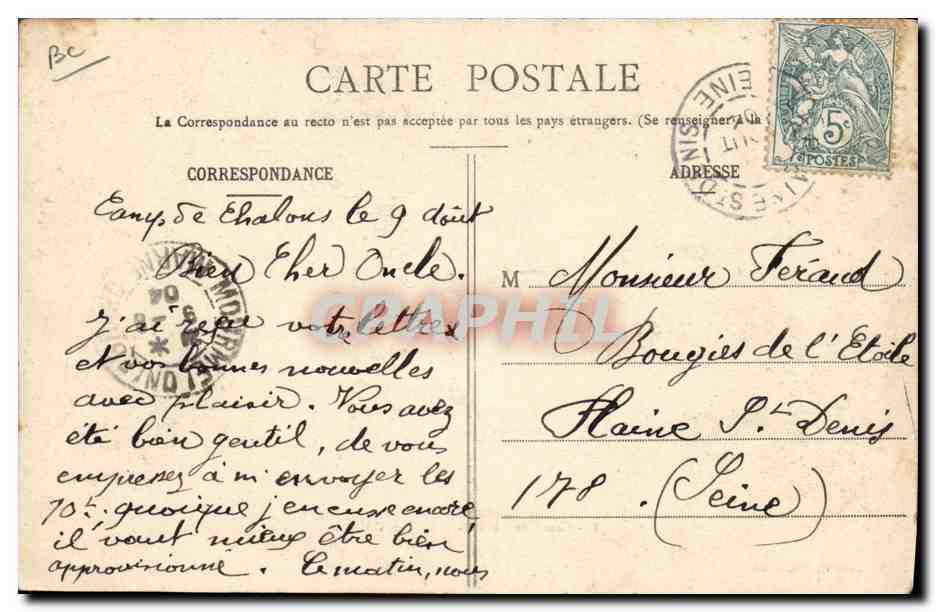 BC
CARTE POSTALE
La Correspondance au recto n'est pas acceptée par tous les pays étrangers. (Se renseigner à la
5c
POSTES
CORRESPONDANCE
Camp de Chalons le 9 Août
Bien Cher Oncle.
j'ai reçu votre lettre
et vos bonnes nouvelles
avec plaisir. Vous avez
été bien gentil, de vous
empressez à m'envoyer les
10f. quoique j'en eusse encore,
il vaut mieux être bien
approvisionné. Ce matin, nous
ADRESSE
M Monsieur Féraud
Bougies de l'Etoile
Plaine St Denis
178. (Seine)
CPAPHIL